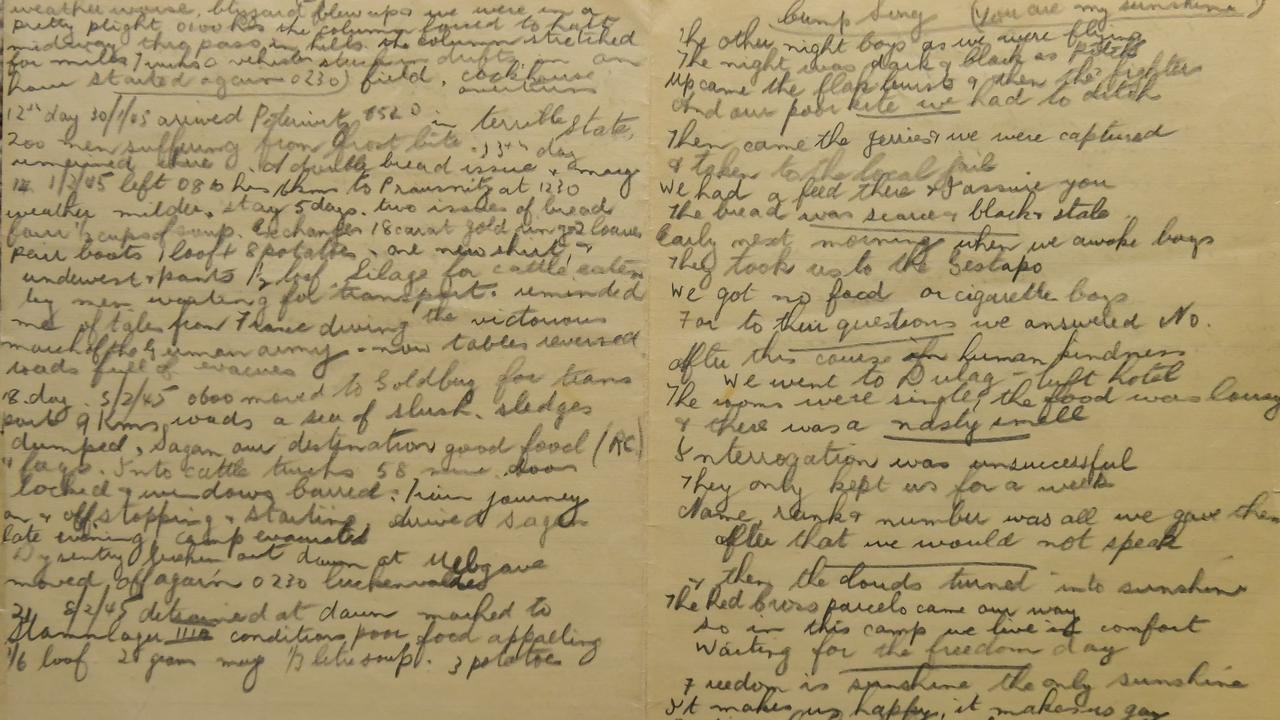 weather worse, blizzard blew up & we were in a
pretty plight 0100 hrs the column forced to halt
midway thro pass in hills. the column stretched
for miles, Trucks & vehicles stuck in drifts. in an
hour started again 0230) field, cookhouse
12th day 30/1/45 arrived 1520 in terrible state,
200 men suffering from frost bite. 13th day
remained there. double bread issue & marg
14 1/2/45 left 08 hrs kms to Prausnitz at 1230
weather milder, stay 5 days. two issues of bread
four 1/2 cups of soup. Exchanges 18 carat gold ring 2 loaves
pair boots 1 loaf & 8 potatoes, one new shirt, &
undervest & pants 1/2 loaf. Silage for cattle eaten
by men waiting for transport. reminded
me of tales from France during the victorious
march of the German army. now tables reversed
roads full of evacuees
18 day. 5/2/45 0600 moved to Goldbug for trans
port 9 Kms, roads a sea of slush. sledges
dumped, Sagan our destination good food (RC)
& fags. Into cattle trucks 58 men. doors
locked & windows barred. Train journey
on & off stopping & starting, arrived Sagan
late evening camp evacuated
Dysentry broken out dawn at
moved off again 0230 luckenwalde
21 8/2/45 detrained at dawn marched to
Stammlager IIIA conditions poor food appalling
1/6 loaf 20 gram marg 1/3 litre soup. 3 potatoes
Song (You are my sunshine)
The other night boys as we were flying
The night was dark & black as pitch
Up came the flak bursts & then the fighter
And our poor kite we had to ditch
Then came the jerries & we were captured
& taken to the local jail
We had a feed there & I assure you
The bread was scarce & black & stale
Early next morning when we awoke boys
They took us to the Gestapo
We got no food or cigarette boys
For to their questions we answered No.
After this course in human kindness
We went to Dulag-luft hotel
The rooms were single, the food was lousy
& there was a nasty smell
Interrogation was unsuccessful
They only kept us for a week
Name, rank & number was all we gave them
After that we would not speak
& then the clouds turned into sunshine
The Red Cross parcels came our way
So in this camp we live in comfort
Waiting for the freedom day
Freedom is sunshine the only sunshine
It makes us happy, it makes us gay